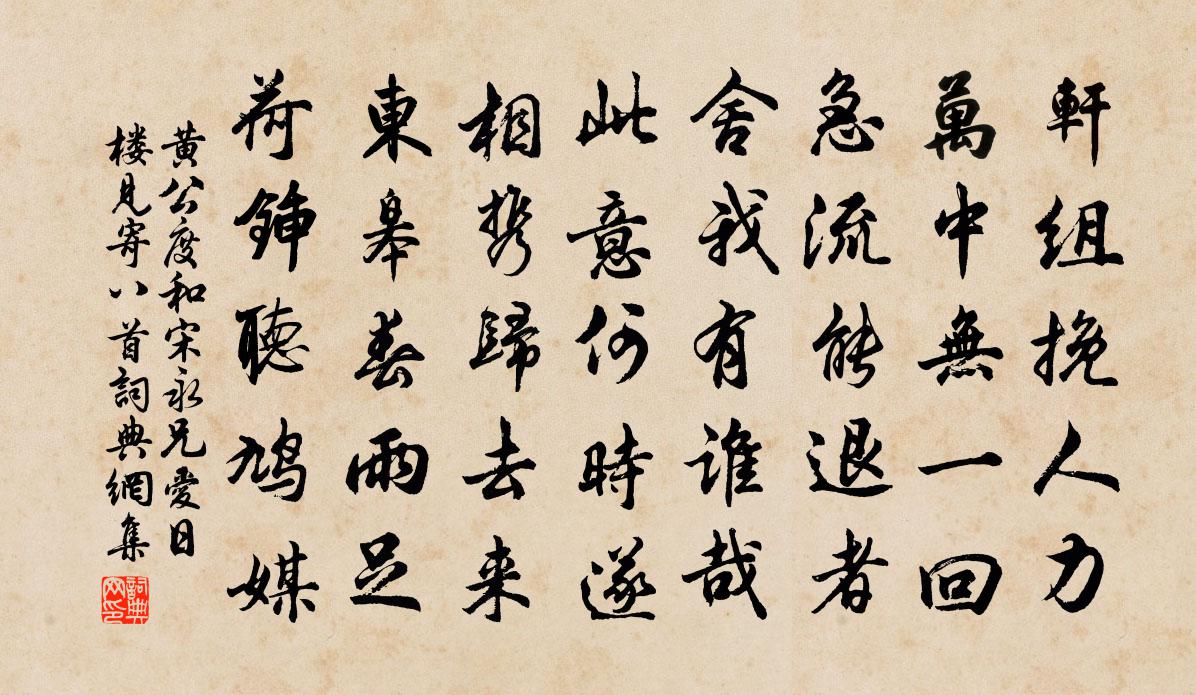 軒組挽人力
萬中無一回
急流能退者
舍我有誰哉
此意何時遂
相携歸去来
東皋春雨足
荷鍤聽鳩媒
黄公度和宋永兄愛日
楼見寄八首詞典網集
詞典網印